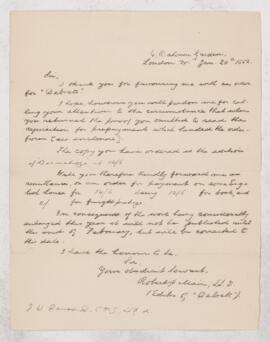 London W. Jan. 20th 1882.
Sir,
I thank you for favouring me with an order
for "Debrett".
I hope however you will pardon me for cal-
ling your attention to the circumstance that when
you returned the proof you omitted to read the
regulation for prepayment which headed the order
form (see enclosure).
The copy you have ordered is the edition
of
Will you therefore kindly forward me a
remittance, or an order for payment on some Eng-
lish house for being for book, and
for freight postage.
In consequence of the work being considerably
enlarged this year it will not be published until
the end of February, but will be corrected to
this date.
I have the honour to be,
Sir,
Your obedient Servant,
Robert H. Mair, LL.D.
(Editor of "Debrett").